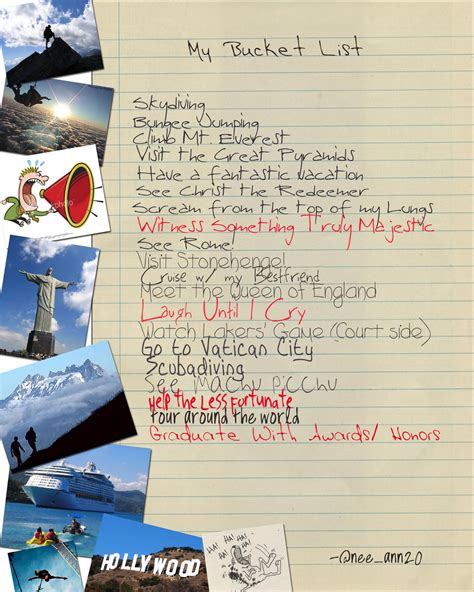 My Bucket List
Skydiving
Bungee Jumping
Climb Mt. Everest
Visit the Great Pyramids
Have a fantastic vacation
See Christ the Redeemer
Scream from the top of my Lungs
Witness Something Truly Majestic
See Rome!
Visit Stonehenge!
Cruise w/ my Bestfriend
Meet the Queen of England
Laugh Until I Cry
Watch Lakers' Game (Court side)
Go to Vatican City
Scubadiving
See Machu Picchu
Help the Less Fortunate
Tour around the world
Graduate With Awards/ Honors
HOLLYWOOD
HA! HA! HA!
-@nee_ann20